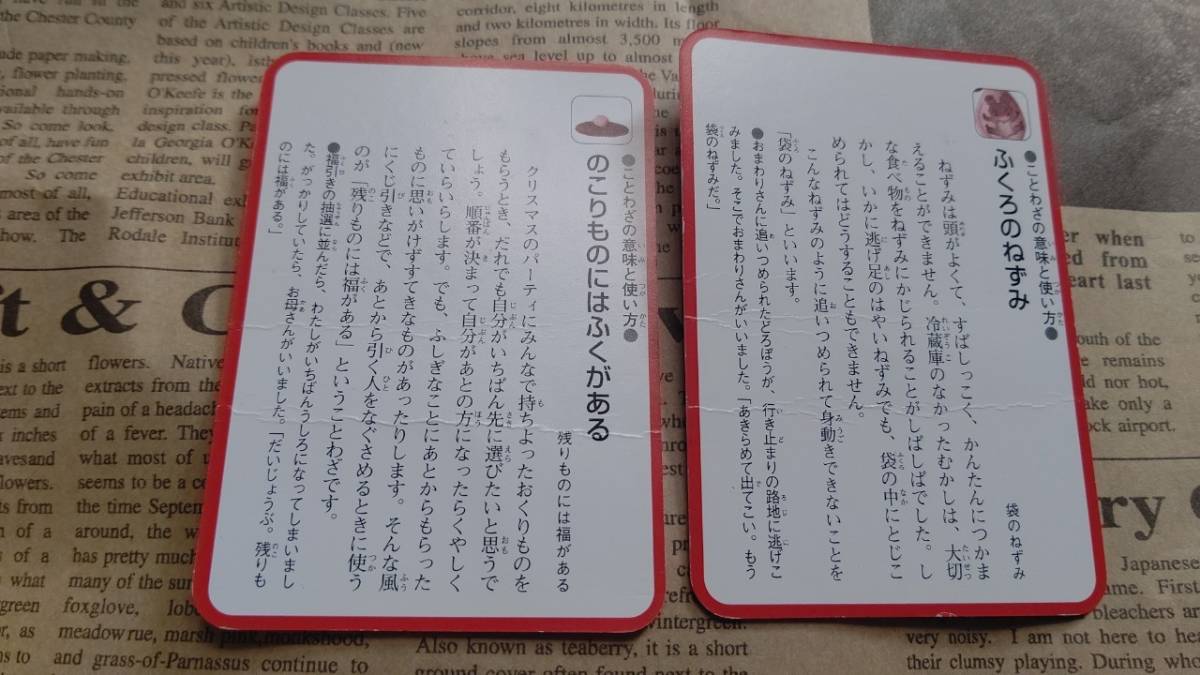 have run in the
the Chester County
and six Artistic Design Classes. Five
of the Artistic Design Classes are
based on children's books and (new
corridor, eight kilometres in length
and two kilometres in width. Its floor
slopes from almost 3,500
sea level up to almost
ade paper making,
flower planting.
hands-on
through
So come look,
of all, have fun
the Chester
So come
most of all,
area of the
how.
this year),
pressed
O'Keefe is the
inspiration for
design class.
la Georgia
children, will
exhibit area.
Educational
Jefferson Bank
The Rodale
●ことわざの意味と使い方●
のこりものにはふくがある
残りものには福がある
クリスマスのパーティにみんなで持ちよったおくりものを
もらうとき、だれでも自分がいちばん先に選びたいと思うで
しょう。順番が決まって自分があとの方になったらくやしく
ていらいらします。でも、ふしぎなことにあとからもらった
ものに思いがけずすてきなものがあったりします。そんな風
にくじ引きなどで、あとから引く人をなぐさめるときに使う
のが「残りものには福がある」ということわざです。
●福引きの抽選に並んだら、わたしがいちばんうしろになってしまいまし
た。がっかりしていたら、お母さんがいいました。「だいじょうぶ。残りも
のには福がある。」
●ことわざの意味と使い方●
ふくろのねずみ
袋のねずみ
ねずみは頭がよくて、すばしっこく、かんたんにつかま
えることができません。冷蔵庫のなかったむかしは、大切
な食べ物をねずみにかじられることがしばしばでした。し
かし、いかに逃げ足のはやいねずみでも、袋の中にとじこ
められてはどうすることもできません。
こんなねずみのように追いつめられて身動きできないことを
「袋のねずみ」といいます。
●おまわりさんに追いつめられたどろぼうが、行き止まりの路地に逃げこ
みました。そこでおまわりさんがいいました。「あきらめて出てこい。もう
袋のねずみだ。」
when
from
heart last
outh of the
remains
nor hot,
ake only a
ock airport.
t & C
is a short
next to the
ems and
inches
leaves and
flowers.
from
of a
of a
what
green
as
to
flowers. Native
extracts from the
pain of a headach
of a fever. They
what most of
seems to be a
the time Septem
around, the
has pretty much
many of the sur
foxglove,
meadow rue, marsh pink, monkshood,
and grass-of-Parnassus continue to
wintergreen.
Also known as teaberry, it is a short
ground cover often found next to the
ry S
Japanese
ame. First
bleachers are
very noisy. I am not here to hea
their clumsy playing. During who